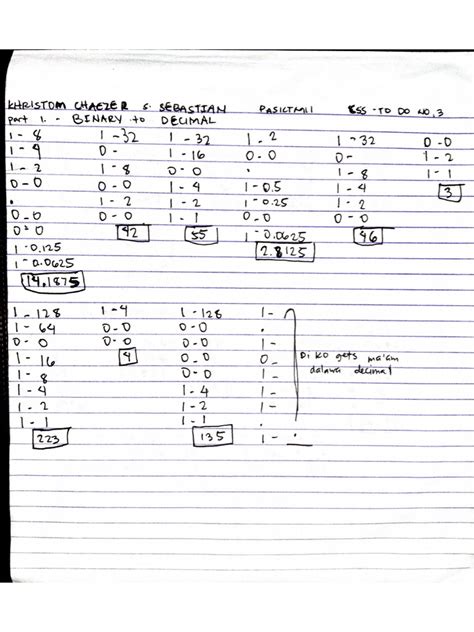 KHRISTOM CHAEZER S. SEBASTIAN PASICTM11 KSS - TO DO NO. 3
part 1. - BINARY to DECIMAL
1 - 8 1 - 32 1 - 32 1 - 2 1 - 32 0 - 0
1 - 4 0 - 1 - 16 0 - 0 0 - 1 - 2
1 - 2 1 - 8 0 - 0 . 1 - 8 1 - 1
0 - 0 0 - 0 1 - 4 1 - 0.5 1 - 4 3
. 1 - 2 1 - 2 1 - 0.25 1 - 2
0 - 0 0 - 0 1 - 1 0 - 0 0 - 0
0 - 0 42 55 1 - 0.0625 46
1 - 0.125 2.8125
1 - 0.0625
14.1875
1 - 128 1 - 4 1 - 128 1 -
1 - 64 0 - 0 0 - 0 .
0 - 0 0 - 0 0 - 0 1 -
1 - 16 4 0 - 0 0 - Di KO gets ma'am
1 - 8 0 - 0 1 - dalawa decimal
1 - 4 1 - 4 1 -
1 - 2 1 - 2 1 -
1 - 1 1 - 1 .
223 135 1 - .